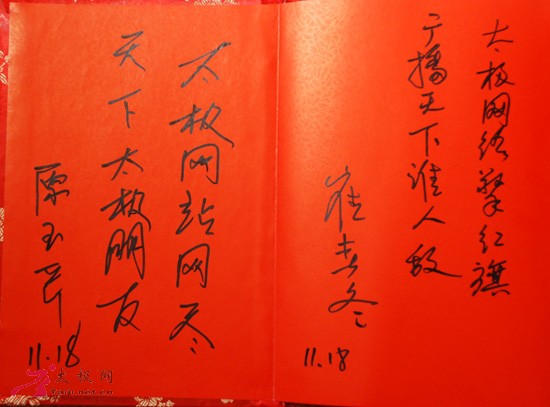 太极网络擎红旗
广播天下谁人敌
11.18
太极网站网尽
天下太极朋友
11.18
太极网